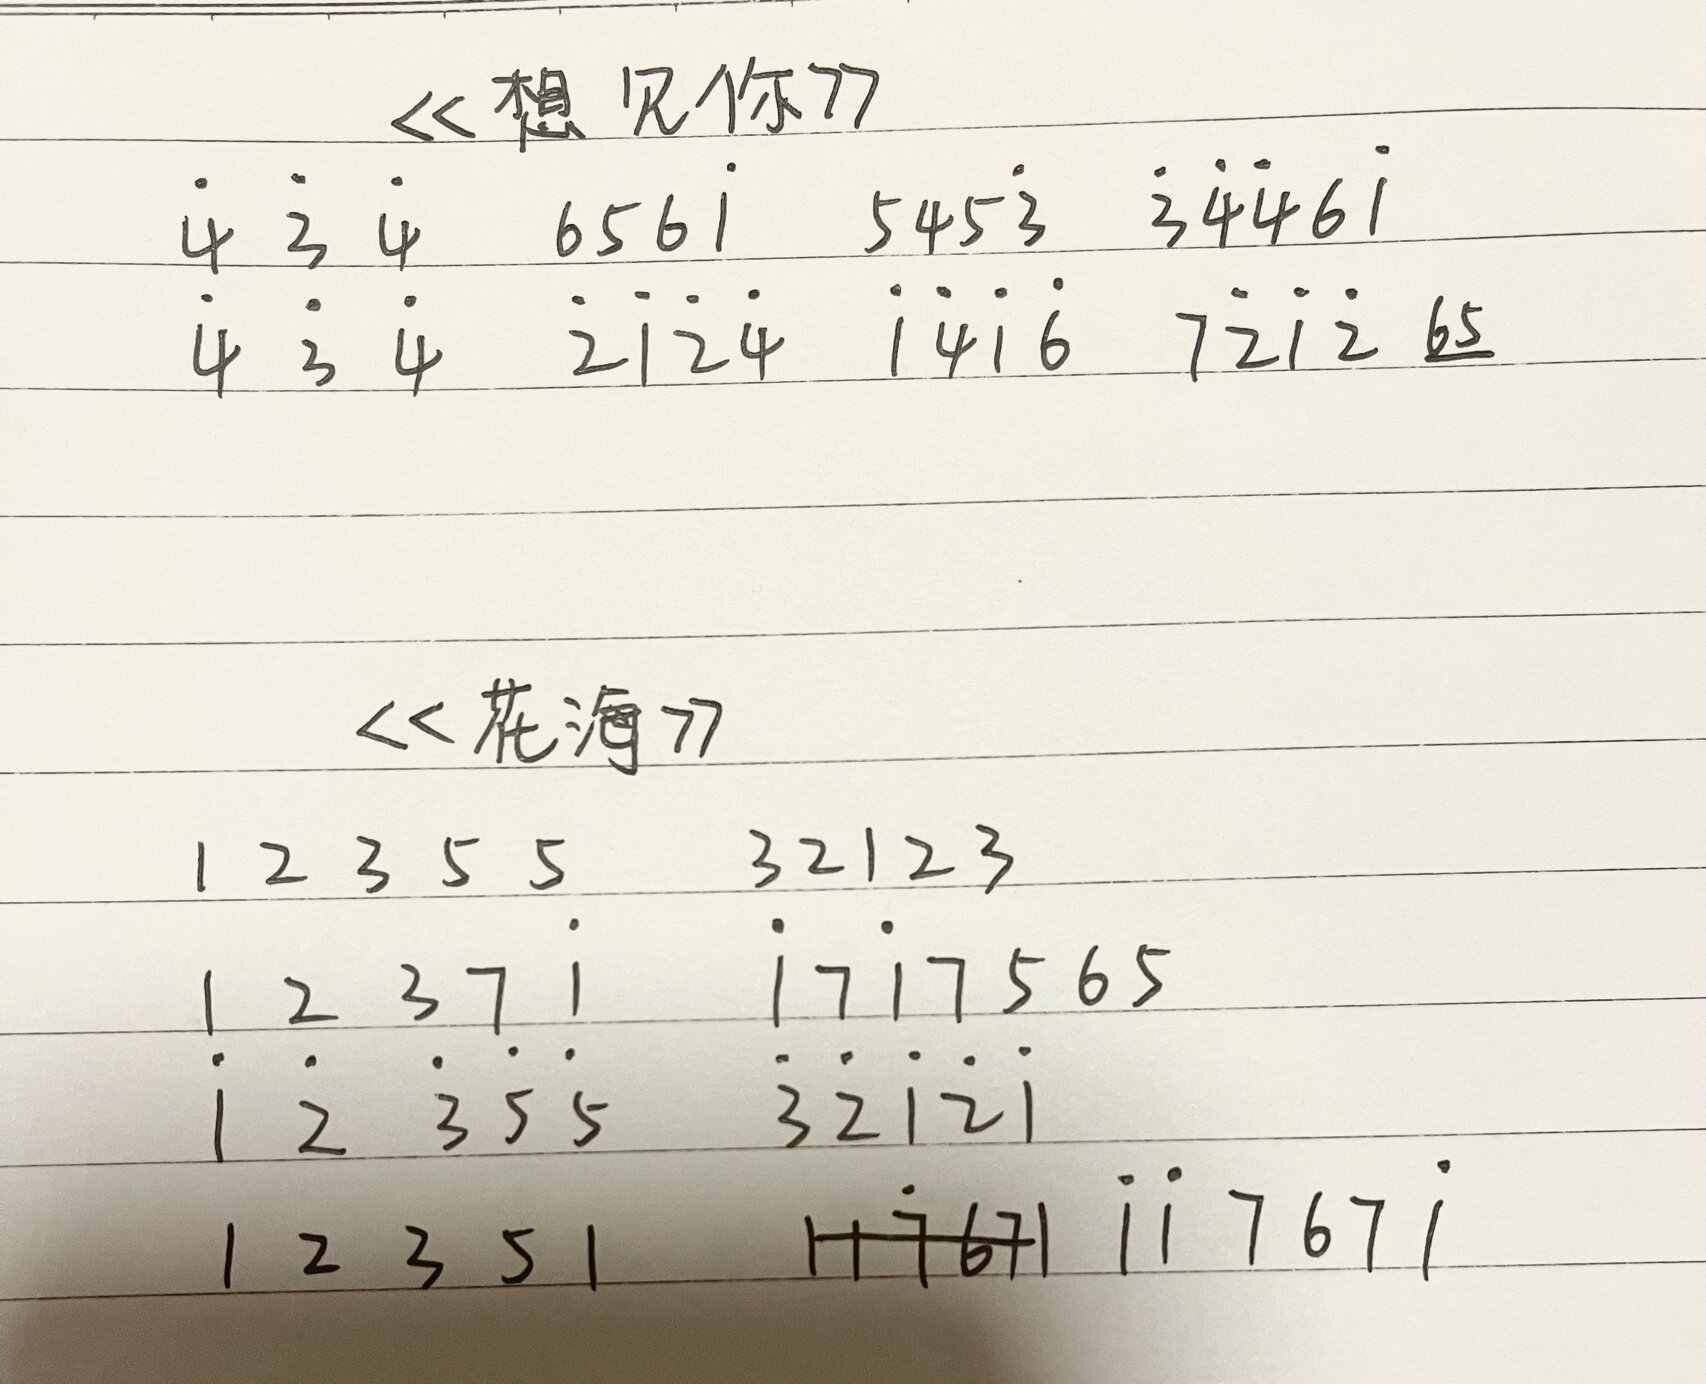 <<想见你>>
4̇ 3̇ 4̇ 6561̇ 5453̇ 3̇4̇4̇61̇
4̇ 3̇ 4̇ 2̇1̇2̇4̇ 1̇4̇1̇6̇ 72̇1̇2̇ 65
<<花海>>
1 2 3 5 5 32123
1 2 3 7 1̇ 1̇71̇7565
1̇ 2̇ 3̇ 5̇ 5̇ 3̇2̇1̇2̇1̇
1 2 3 5 1 117̇671 1̇1̇7671̇